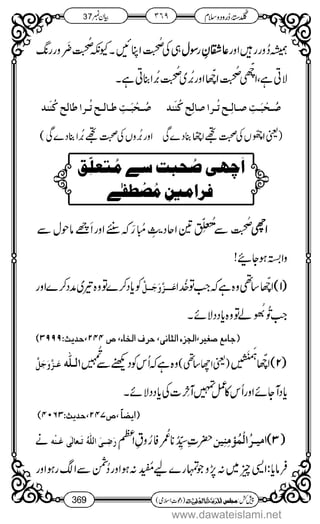 گلدستۂ درود و سلام ٣٦٩ بیان نمبر37
ہمیشہ دُور رہیں اور عاشقانِ رسول ہی کی صُحبت اپنائیں۔ کیونکہ صُحبت ضَرور رنگ
لاتی ہے، اچھی صحبت اچھا اور بُری صُحبت بُرا بناتی ہے۔
صُحبَتِ صالِح تُرا صالِح کُنَد صُحبَتِ طالِح تُرا طالِح کُنَد
(یعنی اچھوں کی صحبت تجھے اچھا بنادے گی اور بُروں کی صحبت تجھے بُرا بنادے گی)
اَچھی صُحبت سے مُتعلّق
فرامینِ مُصطفٰے
اچھی صُحبت سے مُتعلّق تین احادیثِ مُبارَکہ سنئے اور اَچھے ماحول سے
وابستہ ہوجائیے!
(١) اچھا ساتھی وہ ہے کہ جب تو خُدا عَزَّوَجَلَّ کو یاد کرے تو وہ تیری مدد کرے اور
جب تُو بھولے تو وہ یاد دلائے۔
(جامع صغیر،الجزء الثانی، حرف الخاء، ص ٢٤٤،حدیث:٣٩٩٩)
(٢) اچھا ہمنشیں (یعنی اچھا ساتھی) وہ ہے کہ اُس کو دیکھنے سے تُمہیں اللہ عَزَّوَجَلَّ
یاد آجائے اور اُس کا عمل تمہیں آخرت کی یاد دلائے۔
(ایضاً،ص٢٤٧،حدیث:٤٠٦٣)
(٣) امیرُ الْمُؤمِنِین حضرتِ سیِّدُنا عُمر فاروقِ اعظم رَضِیَ اللہُ تَعَالٰی عَنْہُ نے
فرمایا: ایسی چیز میں نہ پڑو جو تمہارے لیے مفید نہ ہو اور دُشمن سے الگ رہو اور
369
www.dawateislami.net